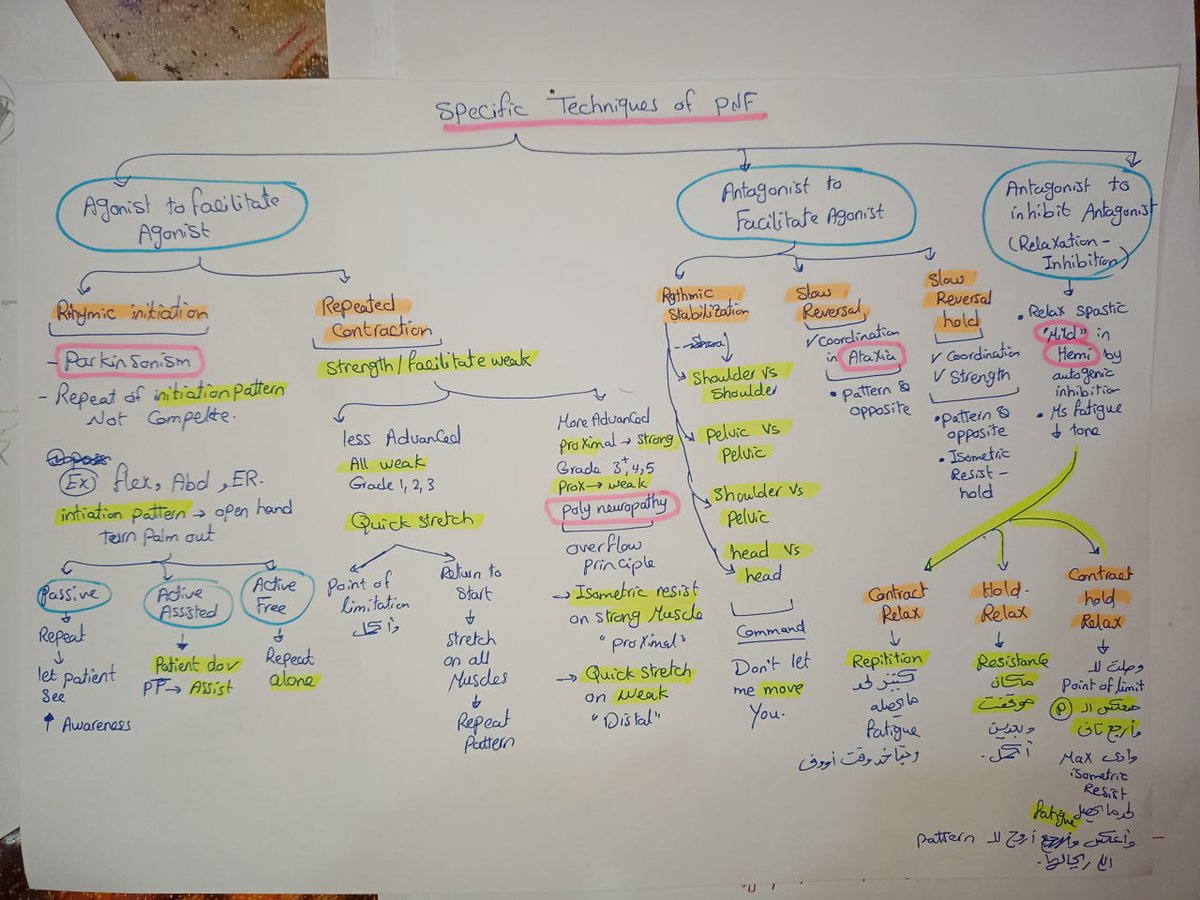 Specific Techniques of PNF
Agonist to facilitate
Agonist
Rhymic initiation
- Parkinsonism
- Repeat of initiation pattern
Not Compelte.
Ex) flex, Abd, ER.
intiation pattern → open hand
turn Palm out
Passive
Repeat
let patient
See
↑ Awareness
Active
Assisted
Patient dov
PT → Assist
Active
Free
Repeat
alone
Repeated
Contraction
Strength/facilitate weak
less Advanced
All weak
Grade 1, 2, 3
Quick stretch
Point of
limitation
وأكمل
Return to
Start
Stretch
on all
Muscles
Repeat
Pattern
More Advanced
proximal → strong
Grade 3+, 4, 5
Prox → weak
Poly neuropathy
overflow
principle
→ Isometric resist
on strong Muscle
"proximal"
→ Quick Stretch
on weak
"Distal"
Antagonist to
Facilitate Agonist
Rythmic
Stabilization
Shoulder vs
Shoulder
Pelvic vs
Pelvic
Shoulder vs
Pelvic
head vs
head
Command
Don't let
me move
You.
Slow
Reversal
✓ Coordination
in Ataxia
• Pattern &
opposite
Slow
Reversal
hold
✓ Coordination
✓ Strength
• Pattern &
opposite
• Isometric
Resist -
hold
Antagonist to
inhibit Antagonist
(Relaxation -
Inhibition)
• Relax spastic
"Mild" in
Hemi by
autogenic
inhibition
• Ms fatigue
↓ tone
Contract
Relax
Repitition
كتير لحد
ما يحصله
fatigue
وقت
Hold -
Relax
Resistance
مكان
موقفت
وبعدين
أكمل.
Contract
hold
Relax
وصلت لـ
Point of limit
هعكس الـ P
وأرجع تاني
وادي Max
isometric
Resist
لحد ما يحصل fatigue
وأعكس وأرجع أروح لـ pattern